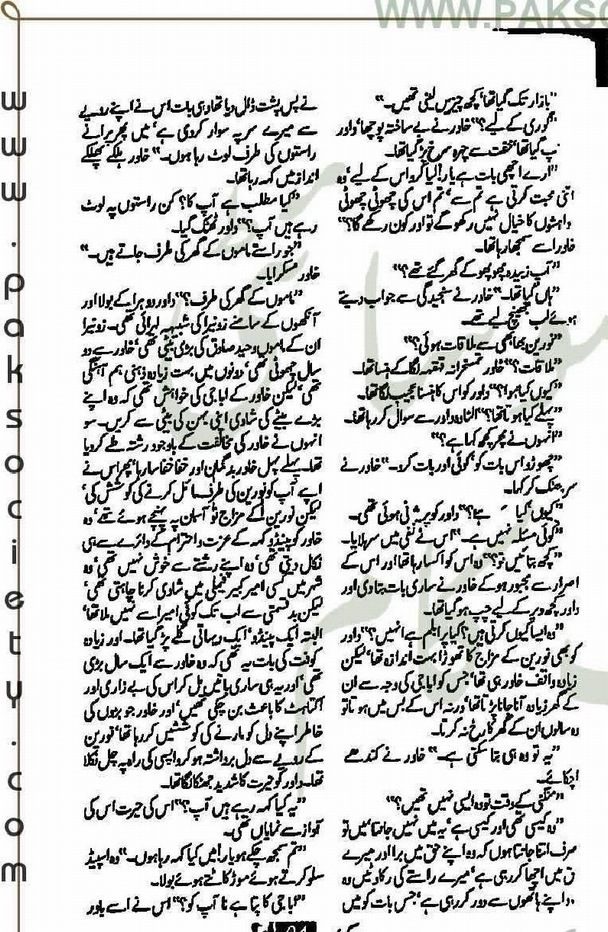 WWW.PAKSO
www.paksociety.com
"بازار تک گیا تھا، کچھ چیزیں لینی تھیں۔"
"گوری کے لیے؟" خاور نے بے ساختہ پوچھا، داور
گیا تھا، خفت سے چہرہ سرخ پڑ گیا تھا۔
"ارے اچھی بات ہے یار! لیا کرو اس کے لیے، وہ
اتنی محبت کرتی ہے تم سے، تم اس کی چھوٹی چھوٹی
خواہشوں کا خیال نہیں رکھو گے تو اور کون رکھے گا؟"
خاور اسے سمجھا رہا تھا۔
"آپ زبیدہ پھوپھو کے گھر گئے تھے؟"
"ہاں گیا تھا۔" خاور نے سنجیدگی سے جواب دیتے
ہوئے لب بھینچ لیے تھے۔
"نورین بھابھی سے ملاقات ہوئی؟"
"ملاقات؟" خاور تمسخرانہ قہقہہ لگا کے ہنسا تھا۔
"کیوں کیا ہوا؟" داور کو اس کا ہنسنا عجیب لگا تھا۔
"پہلے کیا ہوتا تھا؟" الٹا وہ داور سے سوال کر رہا تھا۔
"انہوں نے پھر کچھ کہا ہے؟"
"چھوڑو اس بات کو، کوئی اور بات کرو۔" خاور نے
سر جھٹک کر کہا۔
"کیوں، کیا ہوا؟" داور کو پریشانی ہوئی تھی۔
"کوئی مسئلہ نہیں ہے۔" اس نے نفی میں سر ہلایا۔
"کچھ بتائیں تو؟" وہ اس کو اکسا رہا تھا اور اس کے
اصرار سے مجبور ہو کے خاور نے ساری بات بتا دی اور
داور کچھ دیر کے لیے چپ ہو گیا تھا۔
"وہ ایسا کیوں کرتی ہیں؟ کیا پرابلم ہے انہیں؟" داور
کو بھی نورین کے مزاج کا تھوڑا بہت اندازہ تھا، لیکن
زیادہ واقف خاور ہی تھا، جس کو ابا جی کی وجہ سے ان
کے گھر زیادہ آنا جانا پڑتا تھا، ورنہ اس کے بس میں ہوتا تو
وہ سالوں ان کے گھر کا رخ نہ کرتا۔
"یہ تو وہ ہی بتا سکتی ہے۔" خاور نے کندھے
اچکائے۔
"منگنی کے وقت تو وہ ایسی نہیں تھیں؟"
"وہ کیسی تھی اور کیسی ہے، یہ میں نہیں جانتا، میں تو
صرف اتنا جانتا ہوں کہ وہ اپنے حق میں برا اور میرے
حق میں اچھا کر رہی ہے، میرے راستے کی رکاوٹیں وہ
اپنے ہاتھوں سے دور کر رہی ہے، جس بات کو میں
نے پس پشت ڈال دیا تھا وہی بات اس نے اپنے رویے
سے میرے سر پہ سوار کر دی ہے، میں پھر پرانے
راستوں کی طرف لوٹ رہا ہوں۔" خاور ہلکے پھلکے
انداز میں کہہ رہا تھا۔
"کیا مطلب ہے آپ کا؟ کن راستوں پہ لوٹ
رہے ہیں آپ؟" داور ٹھٹک گیا۔
"جو راستے ماموں کے گھر کی طرف جاتے ہیں۔"
خاور مسکرایا۔
"ماموں کے گھر کی طرف؟" داور دوہرا کے بولا اور
آنکھوں کے سامنے زونیرا کی شبیہہ لہرائی تھی۔ زونیرا
ان کے ماموں وحید صادق کی بڑی بیٹی تھی، خاور سے دو
سال چھوٹی تھی، دونوں میں بہت زیادہ ذہنی ہم آہنگی
تھی، لیکن خاور کے ابا جی کی خواہش تھی کہ وہ اپنے
بڑے بیٹے کی شادی اپنی بہن کی بیٹی سے کریں۔ سو
انہوں نے خاور کی مخالفت کے باوجود رشتہ طے کر دیا
تھا۔ پہلے پہل خاور بدگمان اور خفا خفا سا رہا، پھر اس نے
اپنے آپ کو نورین کی طرف مائل کرنے کی کوشش کی،
لیکن نورین کے مزاج تو آسمان پہ پہنچے ہوئے تھے، وہ
خاور کو پینڈو کہہ کے عزت و احترام کے دائرے سے ہی
نکال دیتی تھی، وہ اپنے رشتے سے خوش نہیں تھی، وہ
شہر میں کسی امیر کبیر فیملی میں شادی کرنا چاہتی تھی،
لیکن بدقسمتی سے اب تک کوئی امیر اسے نہیں ملا تھا،
البتہ ایک پینڈو، ایک دیہاتی طے پڑ گیا تھا۔ اور زیادہ
کوفت کی بات یہ تھی کہ وہ خاور سے ایک سال بڑی
تھی، اور یہ ہی ساری باتیں مل کر اس کی بے زاری اور
اکتاہٹ کا باعث بن چکی تھیں، اور خاور جو بڑوں کی
خاطر اپنے دل کو مارنے کی کوششیں کر رہا تھا، نورین
کے رویے سے دل برداشتہ ہو کر واپسی کی راہ پہ چل نکلا
تھا۔ داور کو حیرت کا شدید جھٹکا لگا تھا۔
"یہ کیا کہہ رہے ہیں آپ؟" اس کی حیرت اس کی
آواز سے نمایاں تھی۔
"تم سمجھ چکے ہو یار! میں کیا کہہ رہا ہوں۔" وہ اسپیڈ
سلو کرتے ہوئے موڑ کاٹتے ہوئے بولا۔
"ابا جی کا پتا ہے نا آپ کو؟" اس نے اسے باور